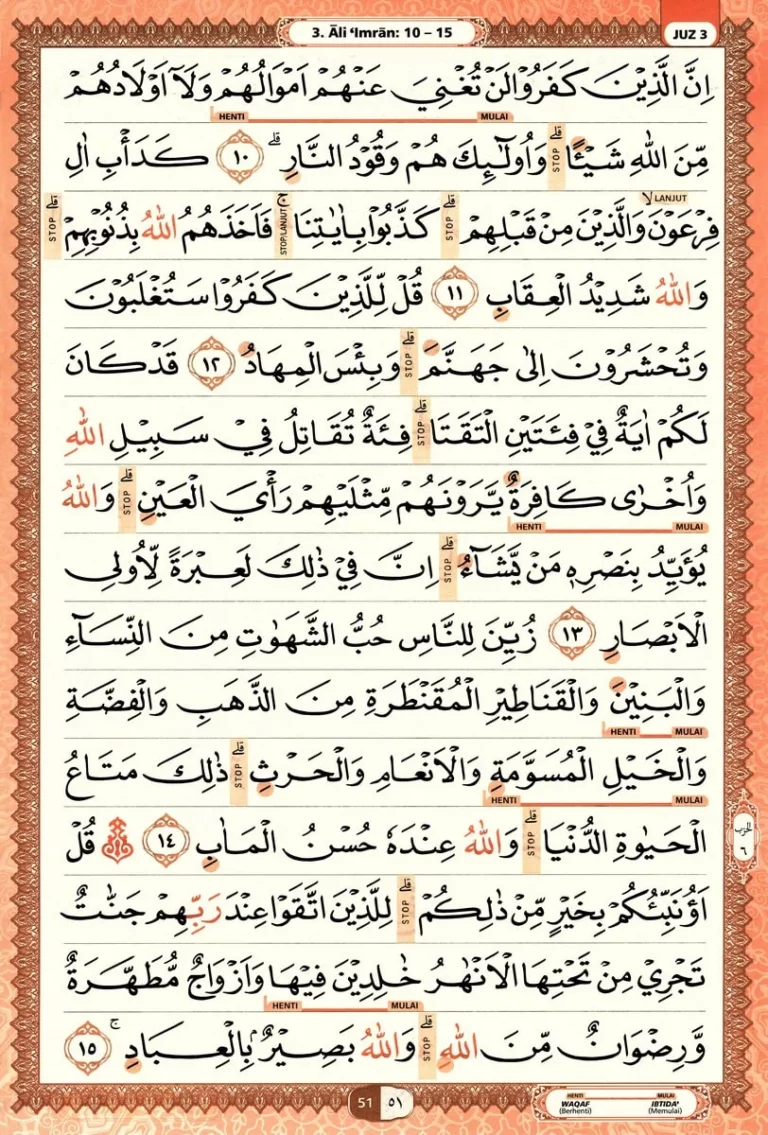 3. Āli ‘Imrān: 10 – 15
JUZ 3
اِنَّ الَّذِيْنَ كَفَرُوْا لَنْ تُغْنِيَ عَنْهُمْ اَمْوَالُهُمْ وَلَآ اَوْلَادُهُمْ
HENTI MULAI
مِّنَ اللّٰهِ شَيْـًٔا ۗ STOP وَاُولٰۤىِٕكَ هُمْ وَقُوْدُ النَّارِۗ ١٠ كَدَأْبِ اٰلِ
فِرْعَوْنَۙ LANJUT وَالَّذِيْنَ مِنْ قَبْلِهِمْ ۗ STOP كَذَّبُوْا بِاٰيٰتِنَاۚ STOP/LANJUT فَاَخَذَهُمُ اللّٰهُ بِذُنُوْبِهِمْ ۗ STOP
وَاللّٰهُ شَدِيْدُ الْعِقَابِ ١١ قُلْ لِّلَّذِيْنَ كَفَرُوْا سَتُغْلَبُوْنَ
وَتُحْشَرُوْنَ اِلٰى جَهَنَّمَ ۗ STOP وَبِئْسَ الْمِهَادُ ١٢ قَدْ كَانَ
لَكُمْ اٰيَةٌ فِيْ فِئَتَيْنِ الْتَقَتَا ۗ STOP فِئَةٌ تُقَاتِلُ فِيْ سَبِيْلِ اللّٰهِ
وَاُخْرٰى كَافِرَةٌ يَّرَوْنَهُمْ مِّثْلَيْهِمْ رَأْيَ الْعَيْنِ ۗ STOP وَاللّٰهُ
HENTI MULAI
يُؤَيِّدُ بِنَصْرِهٖ مَنْ يَّشَاۤءُ ۗ STOP اِنَّ فِيْ ذٰلِكَ لَعِبْرَةً لِّاُولِى
الْاَبْصَارِ ١٣ زُيِّنَ لِلنَّاسِ حُبُّ الشَّهَوٰتِ مِنَ النِّسَاۤءِ
وَالْبَنِيْنَ وَالْقَنَاطِيْرِ الْمُقَنْطَرَةِ مِنَ الذَّهَبِ وَالْفِضَّةِ
HENTI MULAI
وَالْخَيْلِ الْمُسَوَّمَةِ وَالْاَنْعَامِ وَالْحَرْثِ ۗ STOP ذٰلِكَ مَتَاعُ
HENTI MULAI
الْحَيٰوةِ الدُّنْيَا ۗ STOP وَاللّٰهُ عِنْدَهٗ حُسْنُ الْمَاٰبِ ١٤ قُلْ
الحزب ٦
اَؤُنَبِّئُكُمْ بِخَيْرٍ مِّنْ ذٰلِكُمْ ۗ STOP لِلَّذِيْنَ اتَّقَوْا عِنْدَ رَبِّهِمْ جَنّٰتٌ
تَجْرِيْ مِنْ تَحْتِهَا الْاَنْهٰرُ خٰلِدِيْنَ فِيْهَا وَاَزْوَاجٌ مُّطَهَّرَةٌ
HENTI MULAI
وَّرِضْوَانٌ مِّنَ اللّٰهِ ۗ STOP وَاللّٰهُ بَصِيْرٌۢ بِالْعِبَادِۚ ١٥
51 ٥١
HENTI MULAI
WAQAF IBTIDA’
(Berhenti) (Memulai)